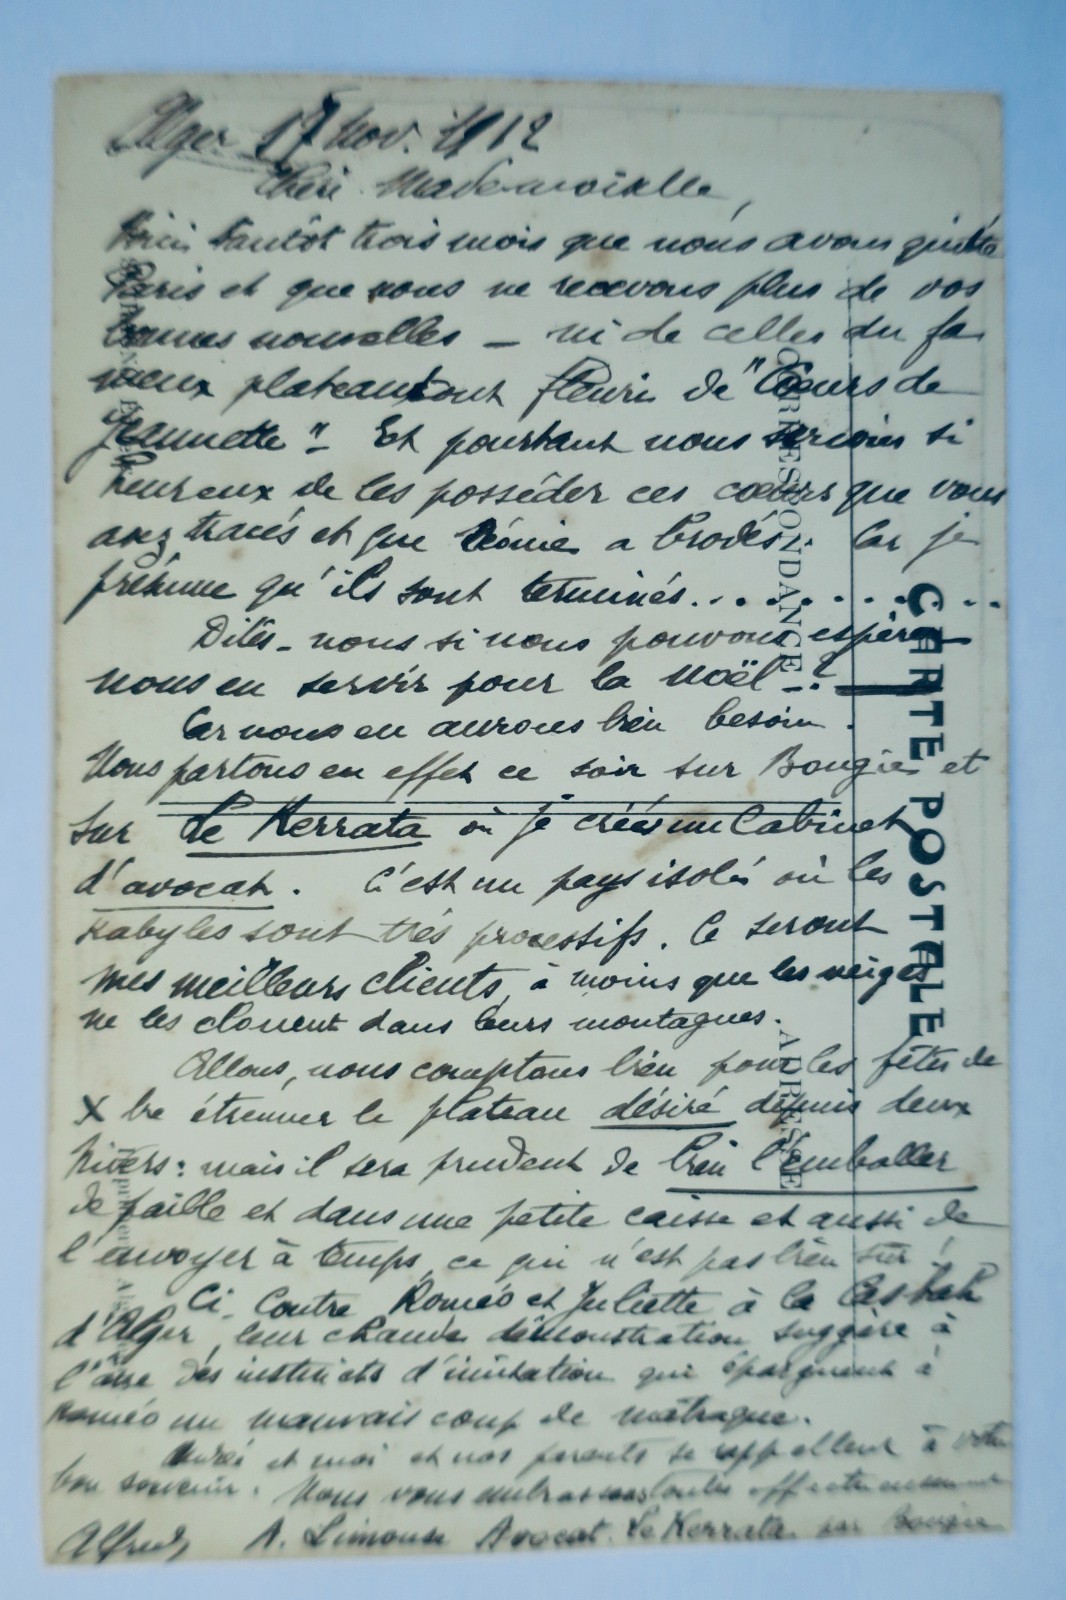 Alger 17 nov. 1912
Chère Mademoiselle,
Voici tantôt trois mois que nous avons quitté
Paris et que nous ne recevons plus de vos
bonnes nouvelles — ni de celles du fa
meux plateau tout fleuri de "Cœurs de
Jeannette" - Et pourtant nous serions si
heureux de les posséder ces cœurs que vous
avez tracés et que Léonie a brodés. Car je
présume qu'ils sont terminés. . . . . . . . .
Dites-nous si nous pouvons espérer
nous en servir pour la Noël - ?
Car nous en aurons bien besoin.
Nous partons en effet ce soir sur Bougie et
sur Le Kerrata où je créés un Cabinet
d'avocat. C'est un pays isolé où les
Kabyles sont très processifs. Ce seront
mes meilleurs clients, à moins que les neiges
ne les clouent dans leurs montagnes.
Allons, nous comptons bien pour les fêtes de
X bre étrenner le plateau désiré depuis deux
hivers : mais il sera prudent de bien l'emballer
de paille et dans une petite caisse et aussi de
l'envoyer à temps, ce qui n'est pas bien sûr !
Ci-Contre Roméo et Juliette à la Casbah
d'Alger, leur chaude démonstration suggère à
l'âne des instincts d'imitation qui épargnent à
Roméo un mauvais coup de matraque.
et moi et nos parents se rappellent à votre
bon souvenir. Nous vous embrassons toutes affectueusement
Alfred A. Limouse Avocat. Le Kerrata par Bougie
CARTE POSTALE
CORRESPONDANCE
ADRESSE